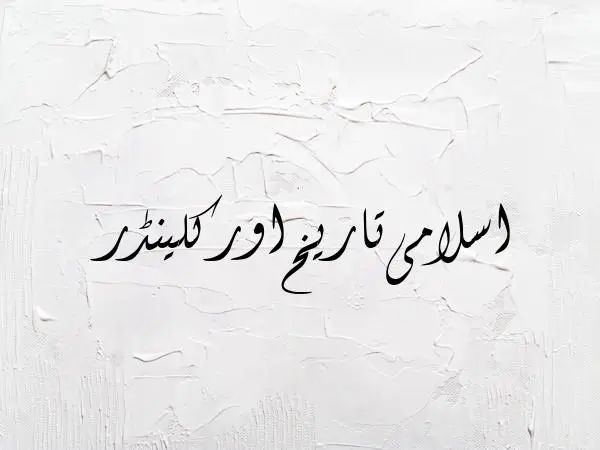 اسلامی تاریخ اور کلینڈر